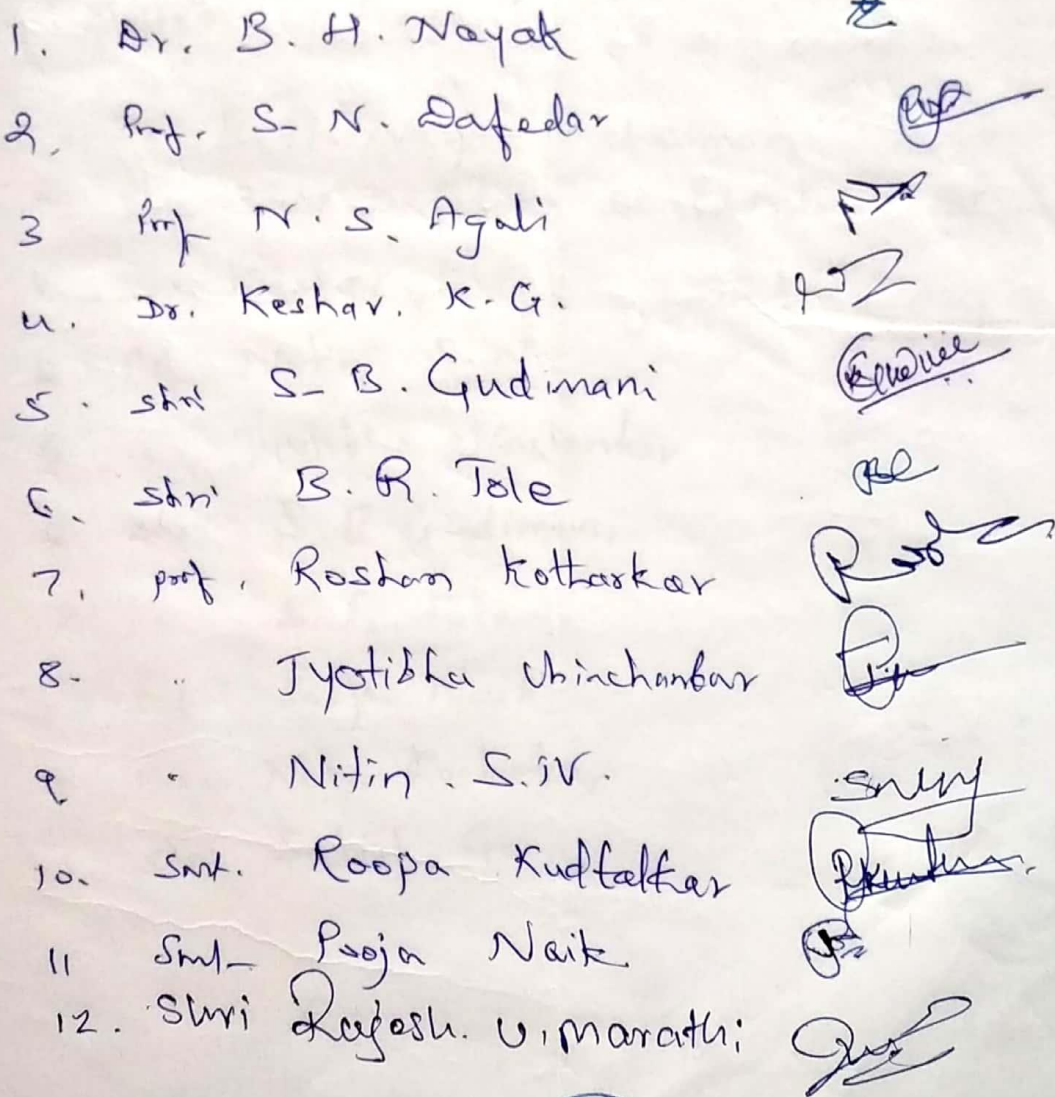 1. Dr. B. H. Nayak
2. Prof. S. N. Dafedar
3 Prof N. S. Agali
4. Dr. Keshav. K. G.
5. Shri S. B. Gudimani
6. Shri B. R. Tole
7. Prof. Roshan Kotharkar
8. " Jyotibha
9 " Nitin. S.
10. Smt. Roopa Kudtalkar
11 Smt. Pooja Naik
12. Shri Rajesh. V. Marathi